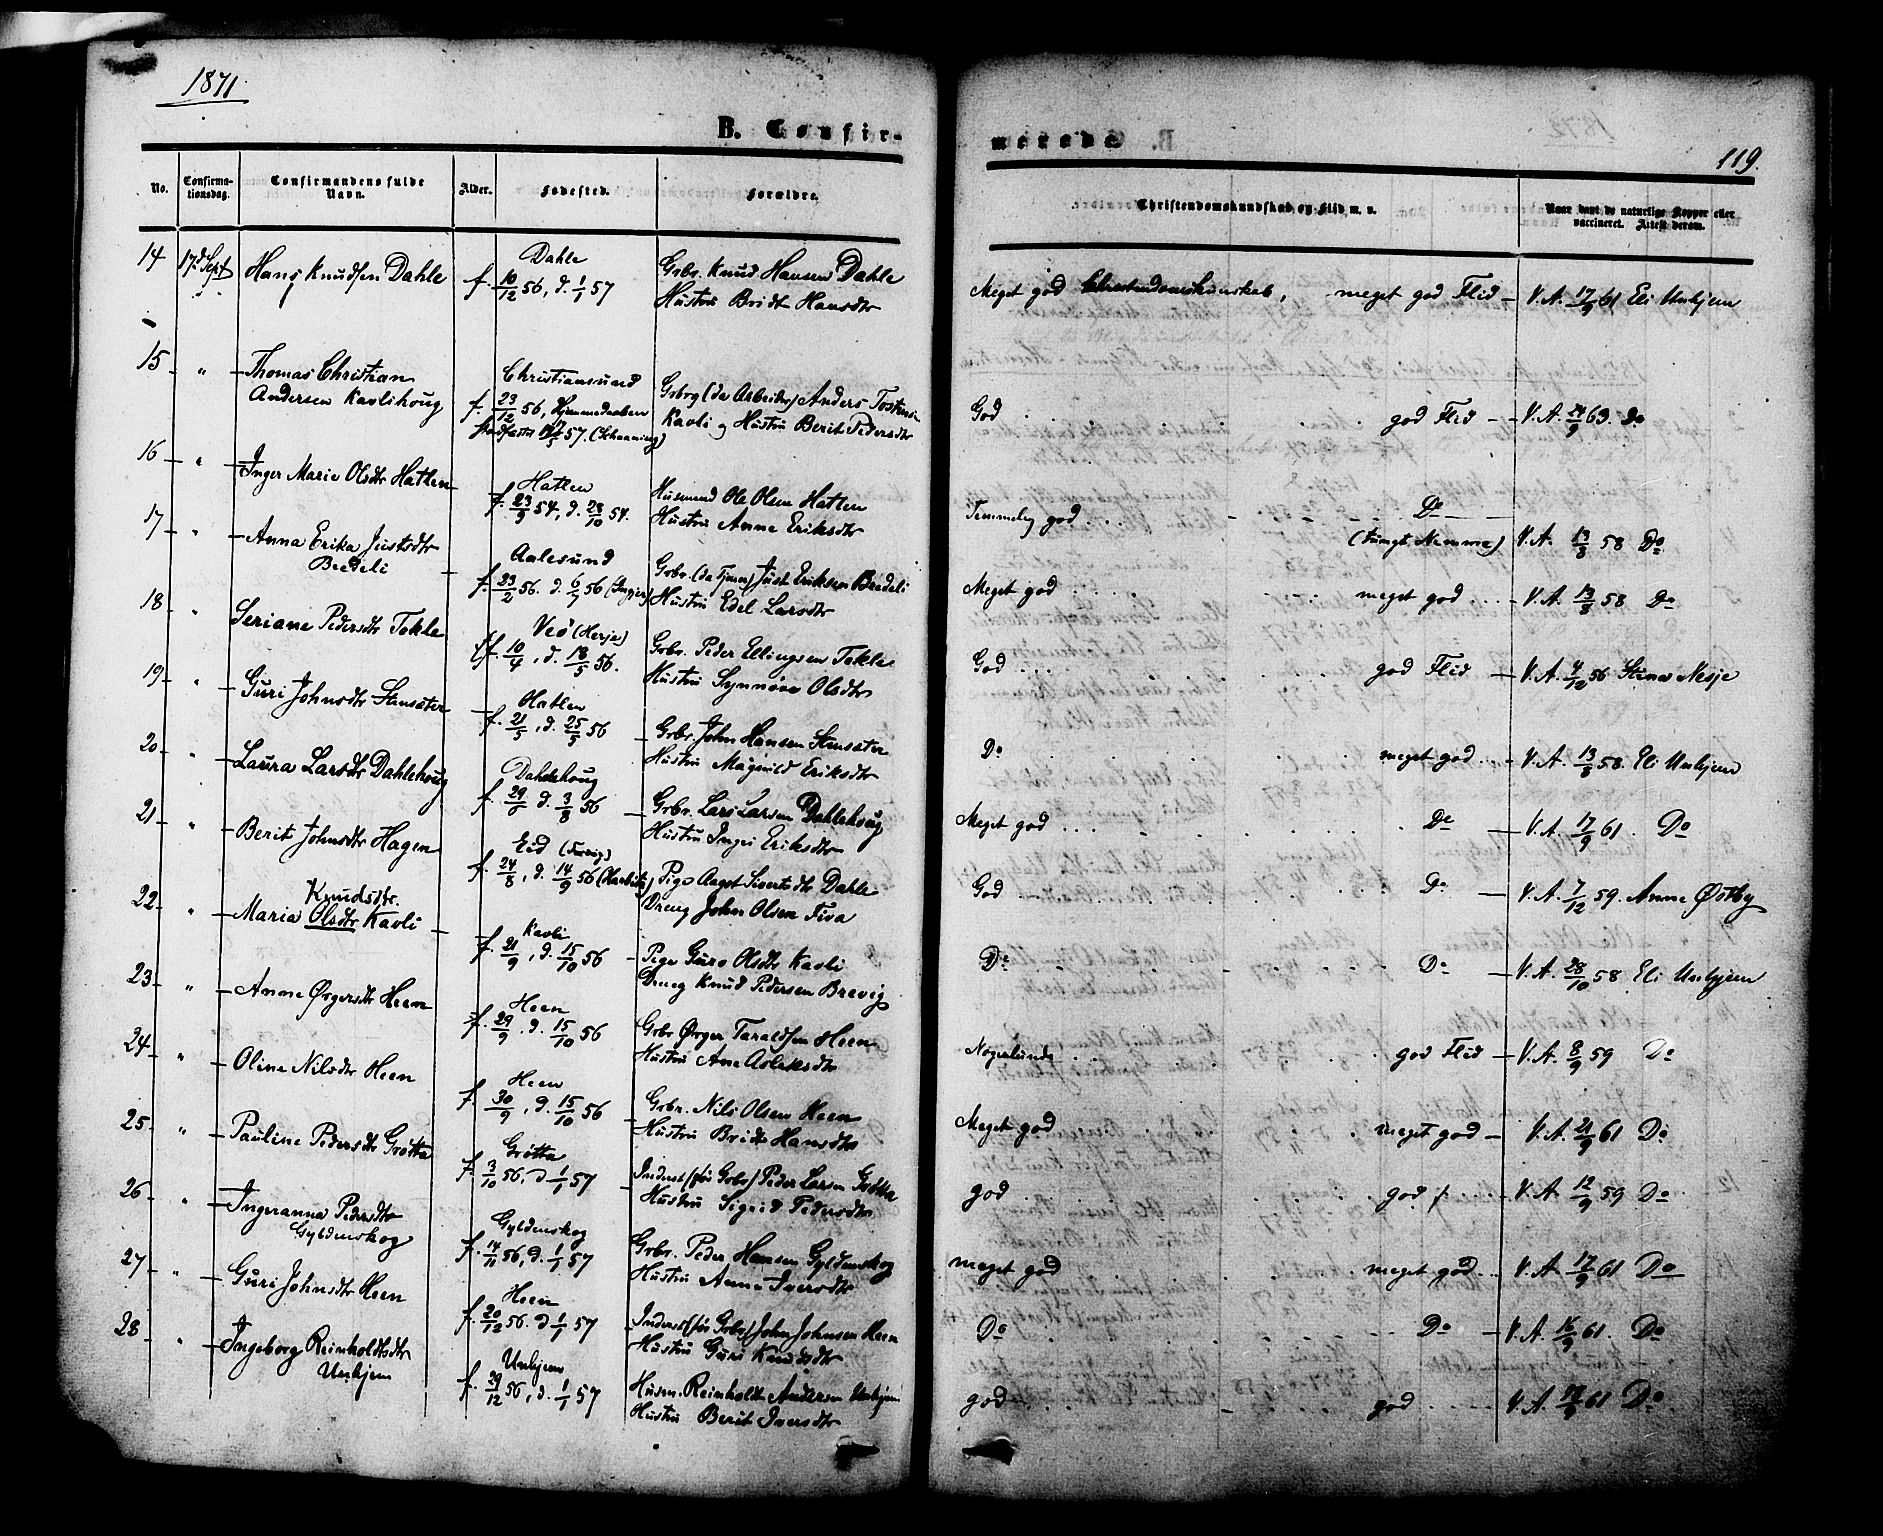 1871
B. Confir-
merede
119.
No.
Confirma-
tionsdag.
Confirmandens fulde
Navn.
Alder.
Fødested.
Forældre.
Christendomskundskab og Flid m. v.
Naar havt de naturlige Kopper eller
vaccineret. Attest derom.
14 17d Sept Hans Knudsen Dahle
Dahle
f. 10/12 56, d. 1/1 57
Grbr. Knud Hansen Dahle
Hustru Bridt Hansdtr
Meget god Christendomskunskab, meget god Flid – V.A. 17/9 61 Eli Unhjem
15 " Thomas Christian
Andersen Kavlihoug
Christiansund
f. 23/12 56, Hjemmedaaben
stadfæstet 57. (Schanning)
Grbrg (da Arbeider) Anders Tostens
Kavli og Hustru Berit Pedersdtr
God god Flid – V.A. 24/9 63. Do
16 " Inger Marie Olsdtr Hatlen
Hatlen
f. 23/9 54, d. 28/10 54.
Husmand Ole Olsen Hatlen
Hustru Anne Eriksdtr
Temmelig god Do
(tungt Nemme) V.A. 13/8 58 Do
17 " Anna Erika Justsdtr
Bredeli
Aalesund
f. 23/2 56. d. 6/7 56
Grbr. (da Tjener) Just Eriksen Bredeli
Hustru Edel Larsdtr
Meget god meget god V.A. 13/8 58 Do
18 " Seriane Pedersdtr Tokle
Veø (Herje)
f. 10/4, d. 18/5 56.
Grbr. Peder Ellingsen Tokle
Hustru Synnøve Olsdtr
God god Flid – V.A. 4/12 56 Stina Nesje
19 " Guri Johnsdtr Stensæter
Hatlen
f. 21/5, d. 25/5 56
Grbr. John Hansen Stensæter
Hustru Magnild Eriksdtr
Do meget god V.A. 13/8 58. Eli Unhjem
20 " Laura Larsdtr Dahlehoug
Dahlehoug
f. 29/6 d. 3/8 56
Grbr. Lars Larsen Dahlehoug
Hustru Inger Eriksdtr
Meget god Do – V.A. 17/9 61. Do
21 " Berit Johnsdtr Hagen
Eid
f. 24/8, d. 14/9 56
Pige Aagot Sivertsdtr Dahle
Dreng John Olsen Fiva
God Do – V.A. 7/12 59. Anne Østby
22 " Knudsdtr.
Maria Olsdtr Kavli
Kavli
f. 21/9, d. 15/10 56
Pige Guro Olsdtr Kavli
Dreng Knud Pedersen Brevig
Do Do – V.A. 28/10 58 Eli Unhjem
23 " Anne Ørgersdtr Heen
Heen
f. 29/9. d. 15/10 56
Grbr Ørger Taraldsen Heen
Hustru Ane Aslaksdtr
Nogenlunde god Flid – V.A. 8/9 59 Do
24 " Oline Nilsdtr Heen
Heen
f. 30/9, d. 15/10 56
Grbr. Nils Olsen Heen
Hustru Bridt Hansdtr
Meget god meget god – V.A. 21/9 61 Do
25 " Pauline Pedersdtr Grøtta
Grøtta
f. 3/10 56, d 1/1 57
Inderst (før Grbr) Peder Larsen Grøtta
Hustru Sigrid Pedersdtr
god god f. V.A. 12/9 59 Do
26 " Ingeranna Pedersdtr
Gyldenskog
Gyldenskog
f. 14/11 56, d. 1/1 57
Grbr. Peder Hansen Gyldenskog
Hustru Anne Iversdtr
meget god meget god V.A. 17/9 61 Do
27 " Guri Johnsdtr Heen
Heen
f. 20/12 56. d 1/1 57
Inderst (før Grbr) John Johnsen Heen
Hustru Guri Knudsdtr
Do Do – V.A. 16/9 61. Do
28 " Ingeborg Reinholdtsdtr
Unhjem
Unhjem
f. 29/12 56, d. 1/1 57
Husm. Reinholdt Andersen Unhjem
Hustru Berit Iversdtr
god god V.A. 61 Do